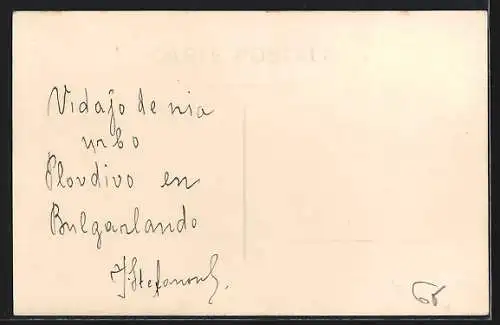 CARTE POSTALE
Vidaĵo de nia
urbo
Plovdivo en
Bulgarlando